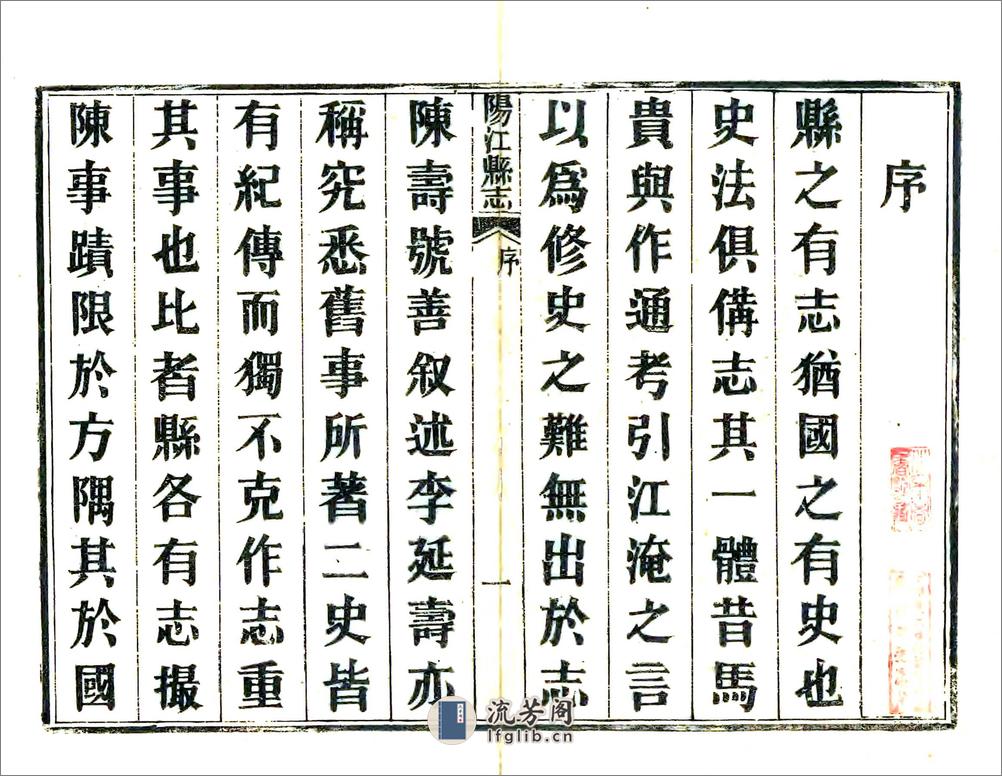 序
縣之有志猶國之有史也
史法俱備志其一體昔馬
貴與作通考引江淹之言
以爲修史之難無出於志
陽江縣志
序
一
陳壽號善叙述李延壽亦
稱究悉舊事所著二史皆
有紀傳而獨不克作志重
其事也比者縣各有志撮
陳事蹟限於方隅其於國
流芳阁
lfglib.cn